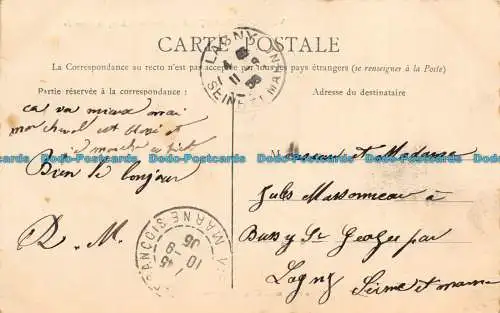 CARTE POSTALE
La Correspondance au recto n'est pas acceptée par tous les pays étrangers (se renseigner à la Poste)
Partie réservée à la correspondance :
ça va mieux mon
cheval est
marche a pied
Bien le bonjour
R. M.
LAGNY
SEINE-ET-MARNE
11 -8
06
MARNE
10 -8
06
Adresse du destinataire
Monsieur et Madame
Jules Massonneau à
Bussy St Georges par
Lagny Seine et marne
Dodo-Postcards Dodo-Postcards Dodo-Postcards Dodo-Postcards Dodo-Postcards Dodo-Postcards